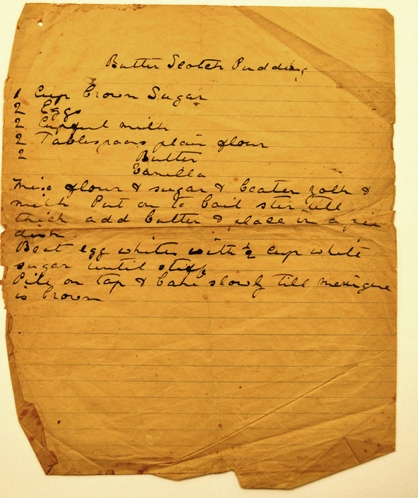 Butter Scotch Pudding
1 Cup Brown Sugar
2 Eggs
2 Cupful milk
2 Tablespoons plain flour
2 Butter
Vanilla
Mix flour & sugar & beaten yolk &
milk Put on to boil stir till
thick add butter & place in a pie
dish
Beat egg whites with ½ cup white
sugar until stiff
Pile on top & bake slowly till meringue
is brown